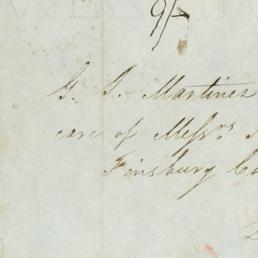 9/-
G. S. Martinez
care of Messrs
Finsburg